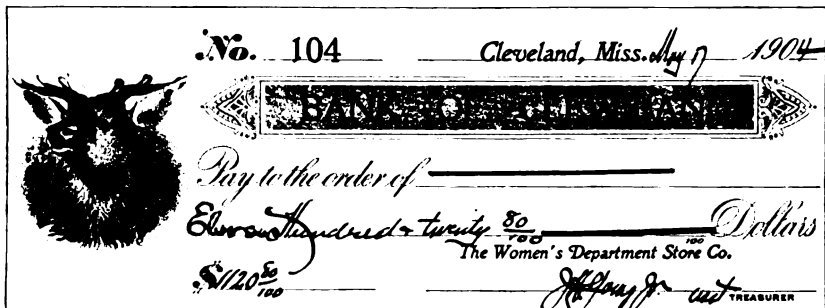 No. 104 Cleveland, Miss. May 17 1904
BANK OF CLEVELAND
Pay to the order of
Eleven Hundred & twenty 80/100 100 Dollars
The Women's Department Store Co.
$1120 80/100
TREASURER